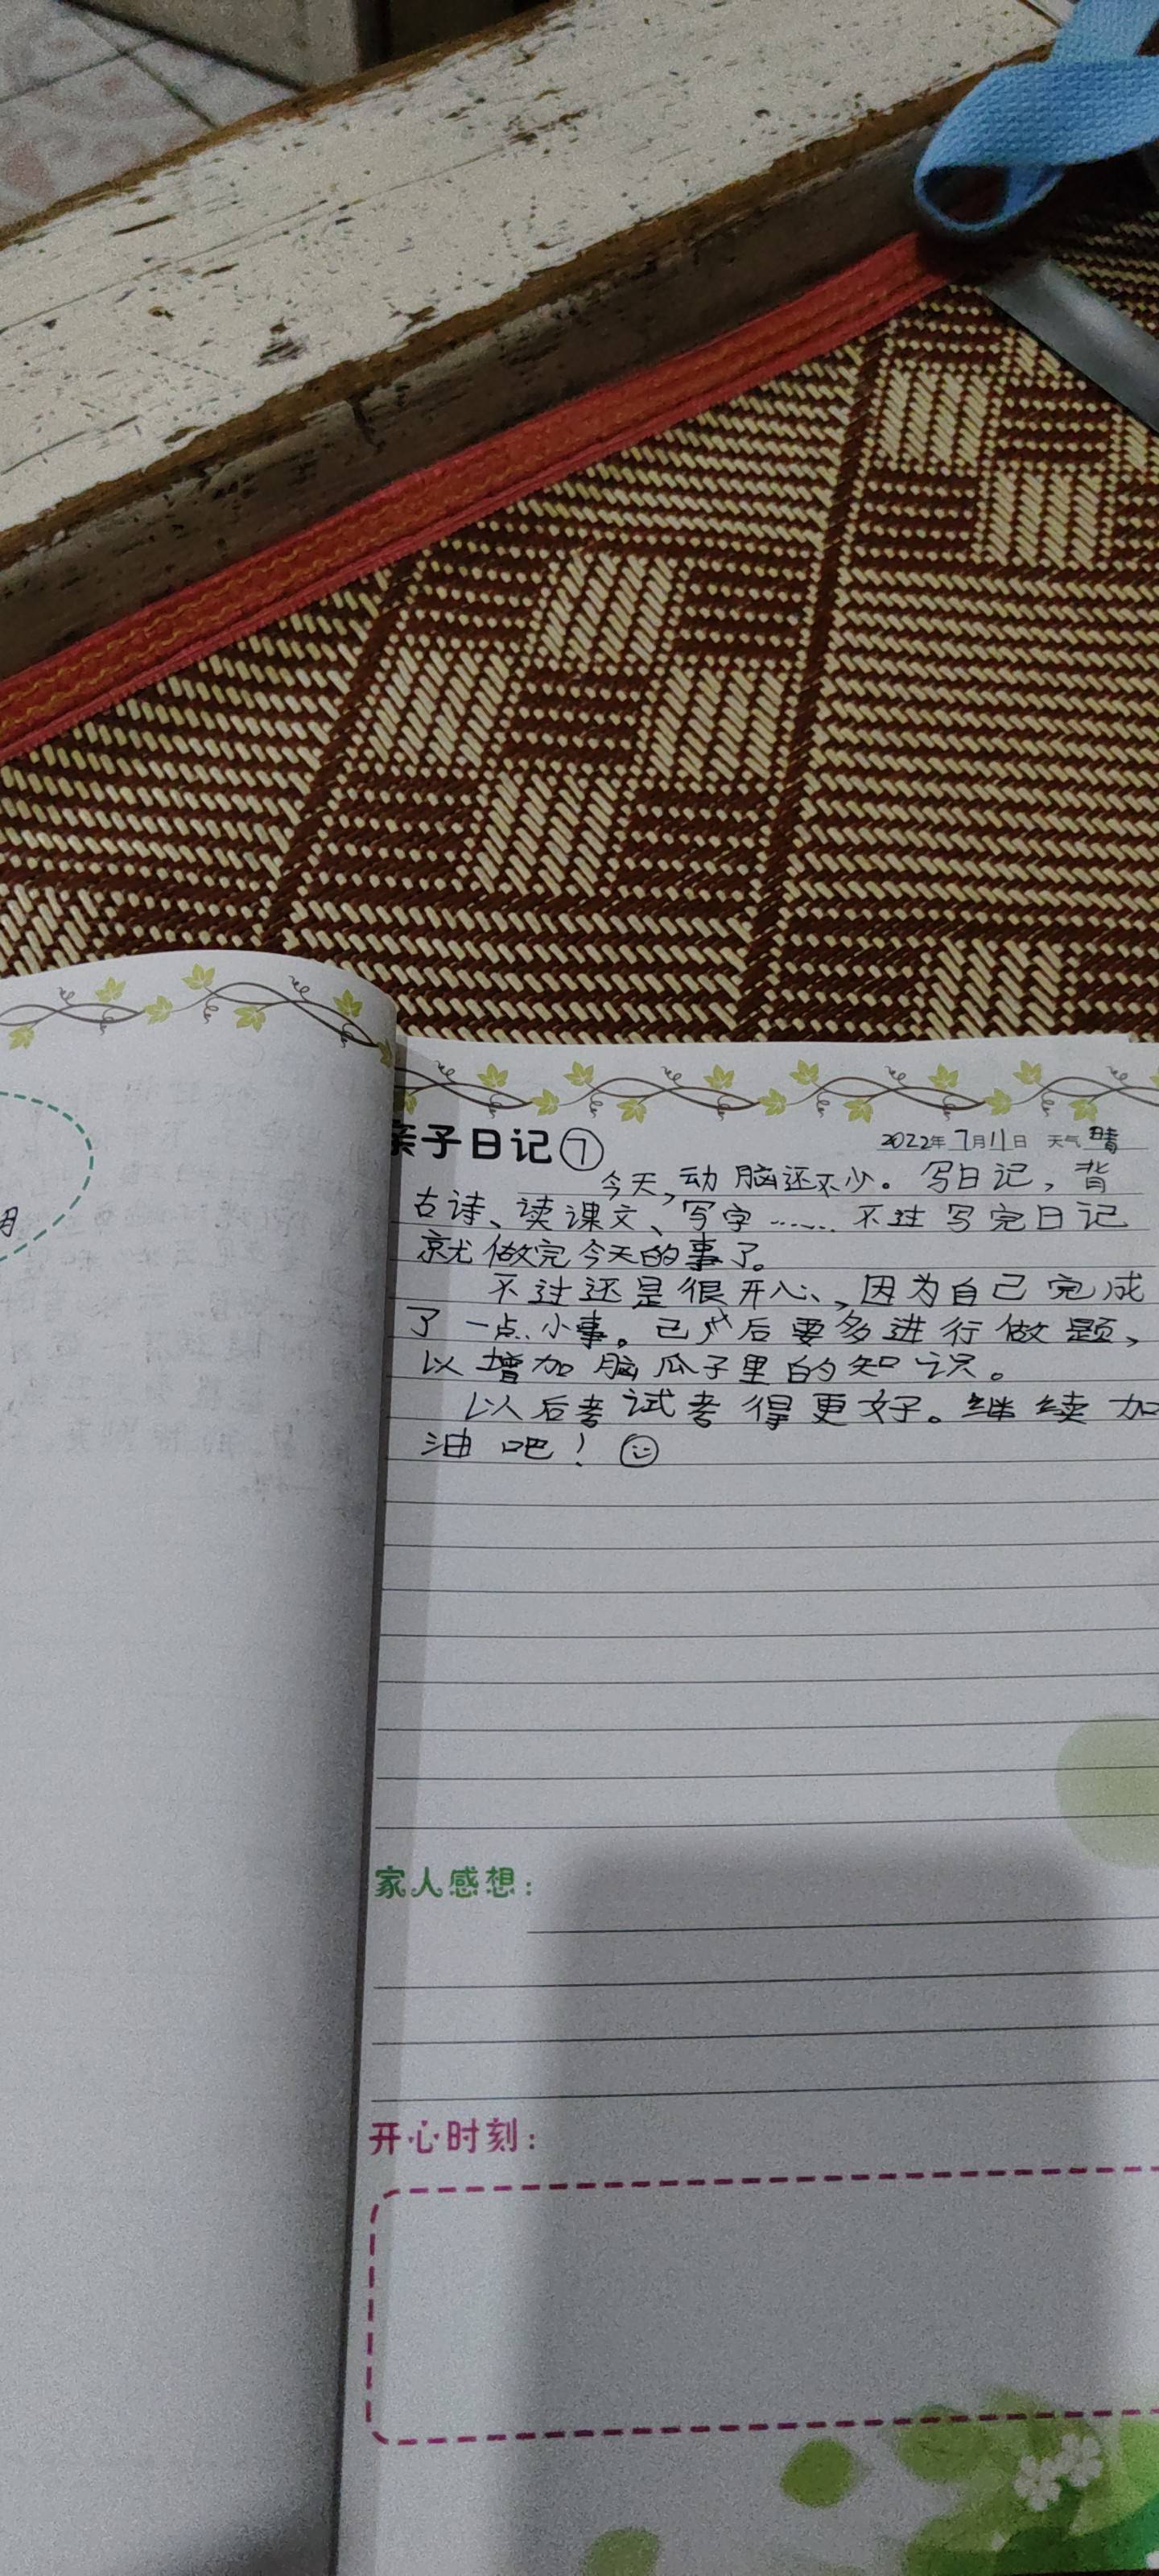 亲子日记⑦
2022年7月11日 天气 晴
今天,动脑还不少。写日记,背
古诗、读课文、写字……不过写完日记
就做完今天的事了。
不过还是很开心,因为自己完成
了一点小事。后要多进行做题,
以增加脑瓜子里的知识。
以后考试考得更好。继续加
油吧!
家人感想:
开心时刻: